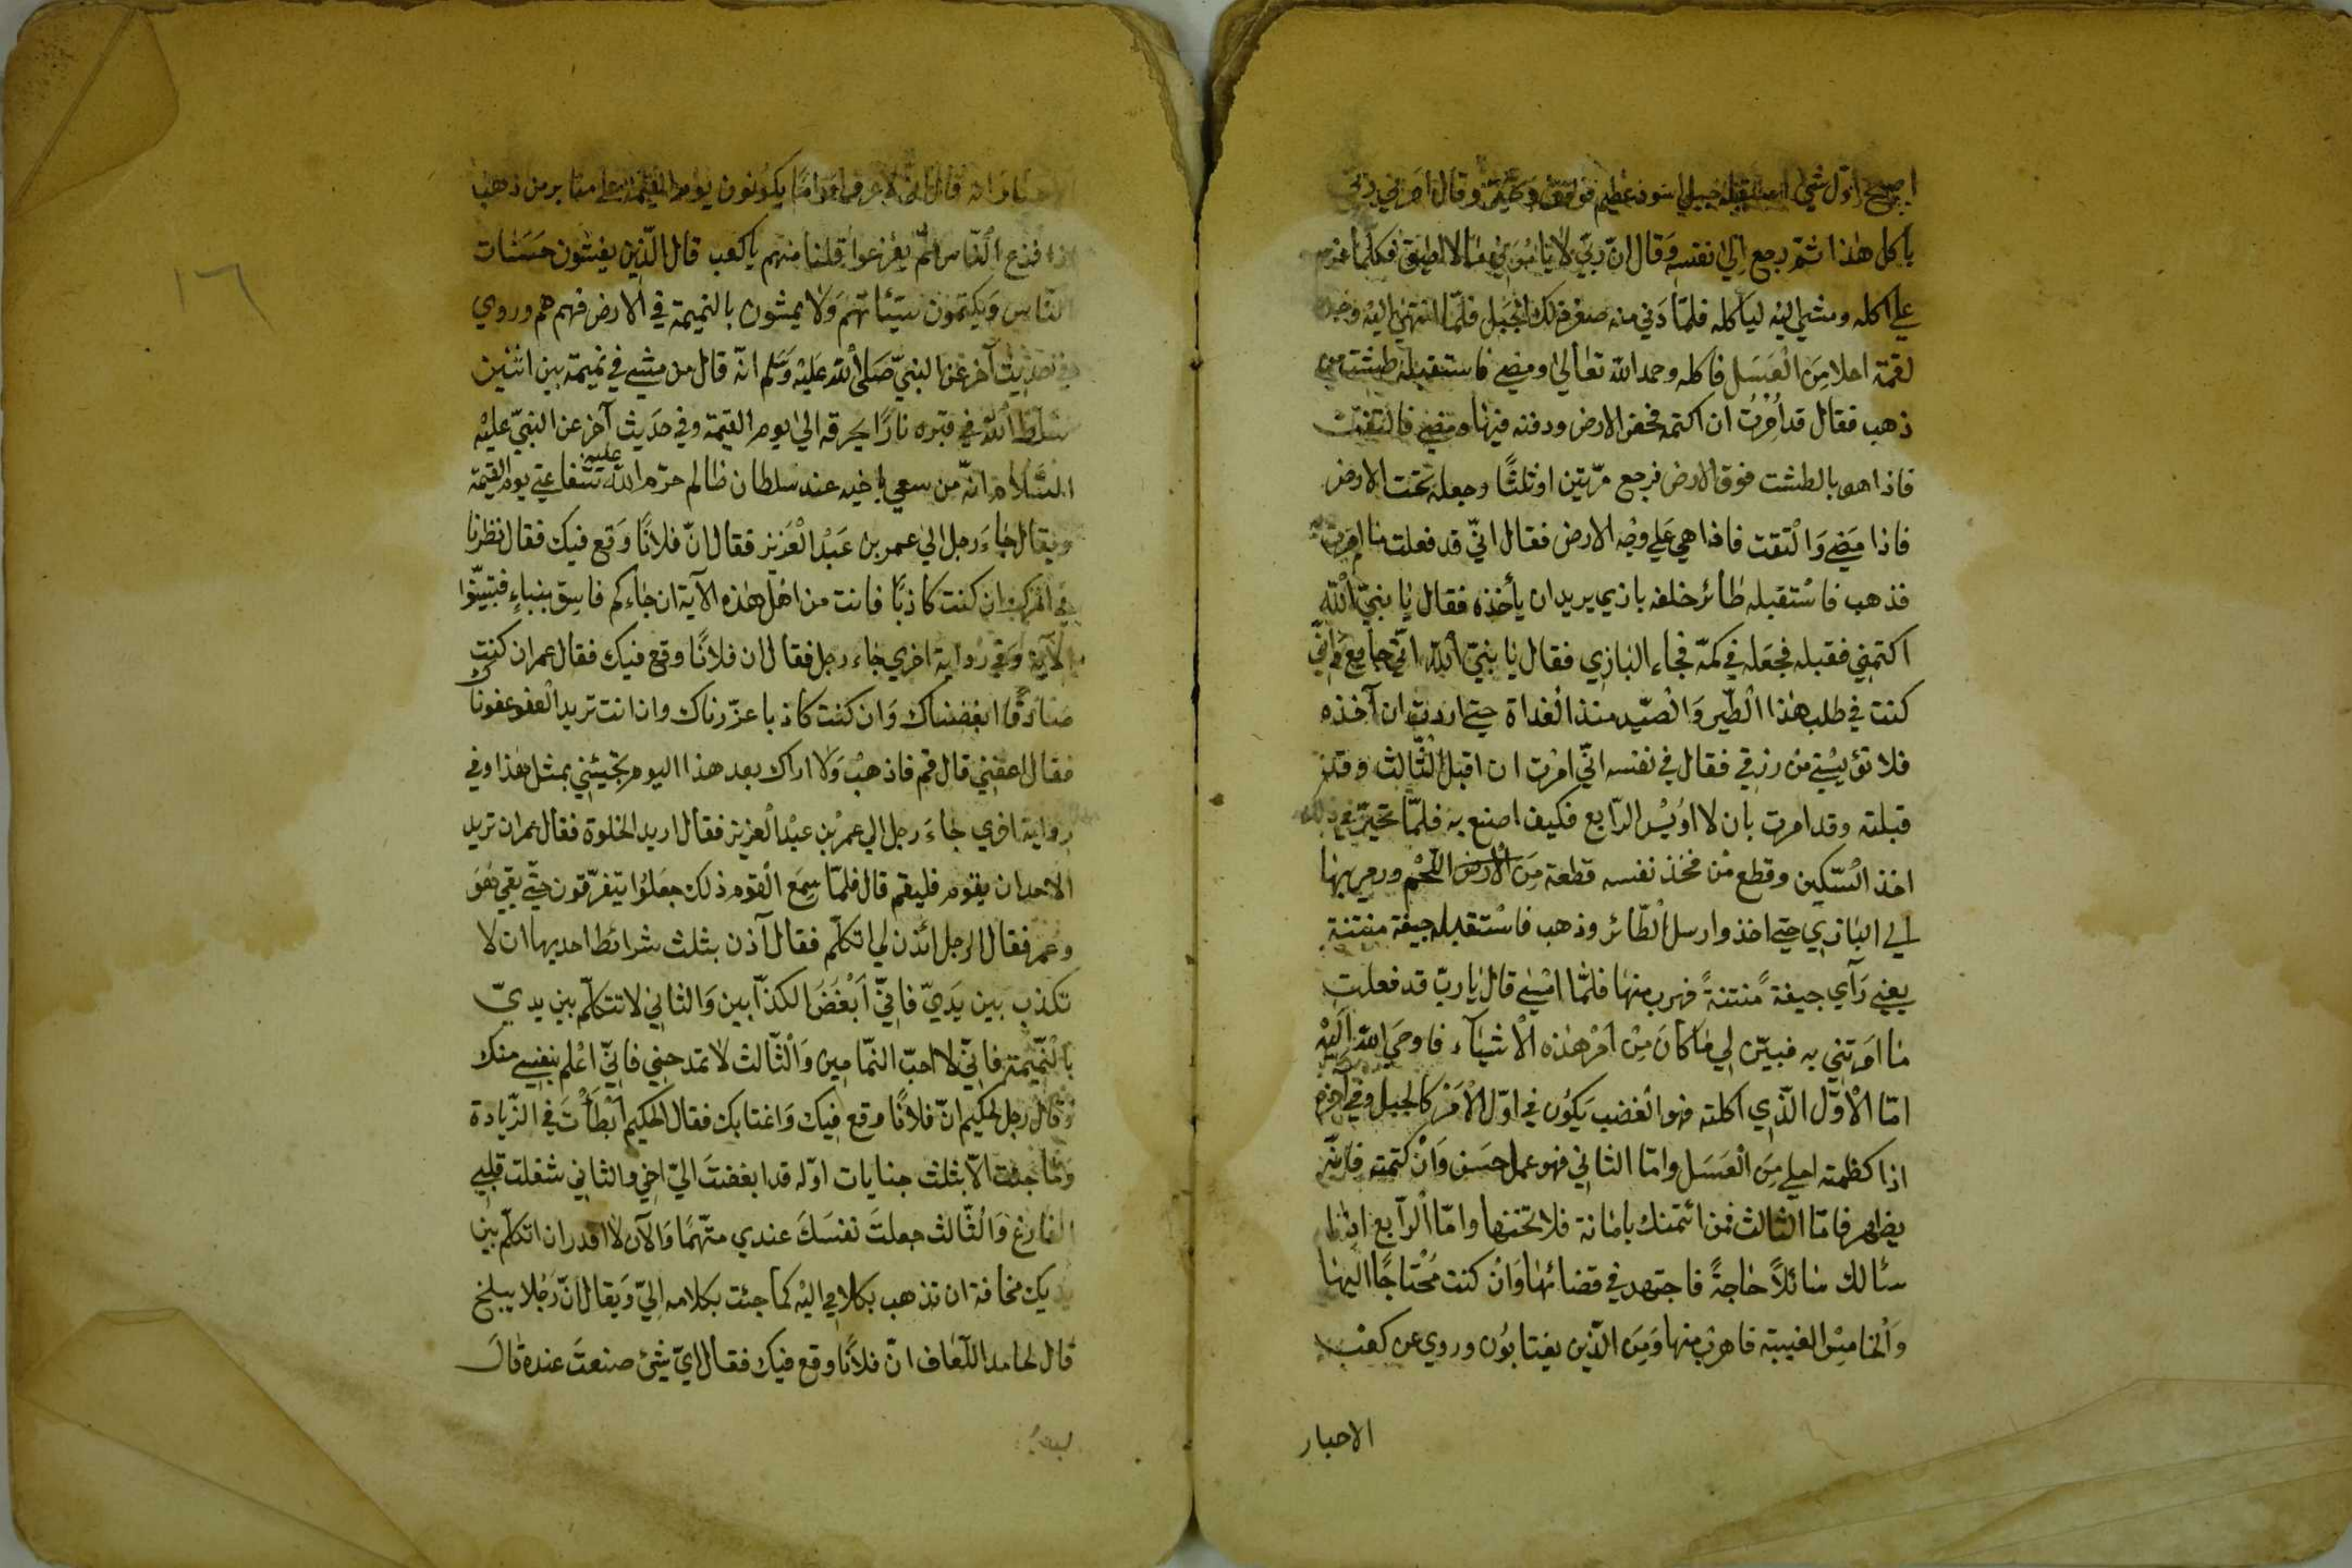 اصبح اوّل شيئ استقبله جبل اسود عظيم فوقف وتحيّر وقال امرني ربّي
بأكل هذا ثمّ رجع الي نفسه وقال انّ ربّي لا يأمرني بما لا اطيق فكلّما عزم
علي اكله ومشي اليه ليأكله فلمّا دَني منه صغر ذلك الجبل فلمّا انتهي اليه وجده
لقمة احلا مِنَ الْعَسَل فاكله وحمد الله تعالي ومضي فاستقبله طشت من
ذهب فقال قد اُمِرْتُ ان اكتمه فحفر الارض ودفنه فيها ومضي فالتفت
فاذا هو بالطشت فوق الارض فرجع مرّتين او ثلثًا وجعله تحت الارض
فاذا مَضي وَالْتفت فاذا هي عَلي وجْه الارض فقال انّي قد فعلت ما امرت به
فذهب فاسْتقبله طائر خلفه بازي يريد ان يأخذه فقال يا نبيّ الله
اكتمني فقبله فجعَله في كمّه فجاء البازي فقال يا نبيّ الله انّي جامع وَانّي
كنت في طلب هذا الطّير وَالْصّيد منذ الْغداة حتي اردت ان آخذه
فلا تؤيسْني مِن رزقي فقال في نفسه انّي امْرت ان اقبل الْثّالث وقد
قبلته وقد امرت بان لا اوُيْس الرّابع فكيف اصنع به فلمّا تحيّر في ذلك
اخذ السّكين وقطع مْن فخذ نفسه قطعة مِنَ الْارض اللّحْم ورمي بها
الي البازي حتي اخذ وارسل الطّائر وذهب فاسْتقبله جيفة منتنة
يعني رَآي جيفةً منتنةً فهرب منها فلمّا امْسي قال يا ربّ قد فعلت
ما امَرتني به فبيّن لي ما كَانَ مِنْ اَمْر هذه الْاشيآء فاوحي الله اليْه
امّا الْاوّل الذّي اكلته فهو الْغضب يَكوُن في اوّل الْاَمْر كالجبل وفي آخره
اذا كظمته احلي مِنَ الْعَسَل وامّا الثاني فهو عمل حسَن وَانْ كتمته فانّه
يظهر فامّا الثّالث فمن ائتمنك بامانة فلا تخنها وامّا الرّابع اذا
سئالك سائلاً حاجةً فاجتهد في قضائها وَانْ كنت مُحْتاجًا اليها
وَالْخامِسْ الغيبة فاهرب منها وَمِنَ الّذين يغتابوُن وروي عن كعْب
الاحبار
الاحبار انه قال انّي لاعرف اقوامًا يكونون يوم القيمة علي منابر من ذهب
اذا فزع النّاس لمْ يفزعوا قلنا منهم يا كعب قال الّذين يفشون حَسَنات
النّاس وَيكتمون سيئاتهم وَلا يمشون بالنميمة في الارض فهم هم وروي
في حديث آخر عَن النبيّ صَلي الله عَليْه وَسَلم انّه قال من مشي في نميمة بين اثنين
سلّط الله في قبره نارًا يحرقه الي يوم القيمة وفي حَديث آخر عن النبيّ عليْه
السّلام انّه مَن سعي باخيه عند سلطان ظالم حرّم الله عليه شفاعتي يوم القيمة
ويقال جَاءَ رجل الي عمر بن عَبْد الْعَزيز فقال انّ فلانًا وَقع فيك فقال نظرنا
في امْرك ان كنت كاذبًا فانت من اهْل هذه الآية ان جاءكم فاسِق بنباءٍ فتبيّنوا
الآية وَفي رواية اخري جاء رجل فقال ان فلانًا وقع فيك فقال عمر ان كنت
صَادقًا ابغضناك وَان كنت كاذبا عزّرناك وان انت تريد الْعفو عفوناك
فقال اعفني قال قم فاذهبْ وَلا اراك بعد هذا اليوم تجيئني بمثل هذا وفي
رواية اخري جاءَ رجل الي عمرْ بن عبْد الْعزيز فقال اريد الخلوة فقال عمر ان تريد
الاحد ان يقوم فليقم قال فلمّا سِمَع الْقوم ذلك جعَلوُا يتفرّقون حتّي بقي هوَ
وعمر فقال الرجل ائذن لي اتكلّم فقال آذن بثلث شرائط احديها ان لا
تكذب بين يَديّ فانّي اَبْغَضُ الكذّابين وَالثاني لا تتكلّم بين يديّ
بالْنّميمة فانّي لا احبّ النمّامين وَالْثّالث لا تمدحني فانّي اعْلم بنفسي منك
وقال رجل لحكيم انّ فلانًا وقع فيك وَاغتابك فقال الحكيم اَبْطَأْتَ في الزّيادة
وَما جئت الّا بثلث جنايات اوّله قد ابغضتَ اليّ اخي والثاني شغلت قلبي
الفارغ وَالْثّالث جعلتَ نفسَكَ عندي متّهمًا وَالآن لا اقدر ان اتكلّم بين
يديك مخافة ان تذهب بكلامي اليْه كما جئت بكلامه اليّ وَيقال انّ رَجُلا ببلخ
قال لحامد اللّفاف انّ فلانًا وقع فيك فقال ايّ شيئ صنعتَ عنده قالَ
١٦